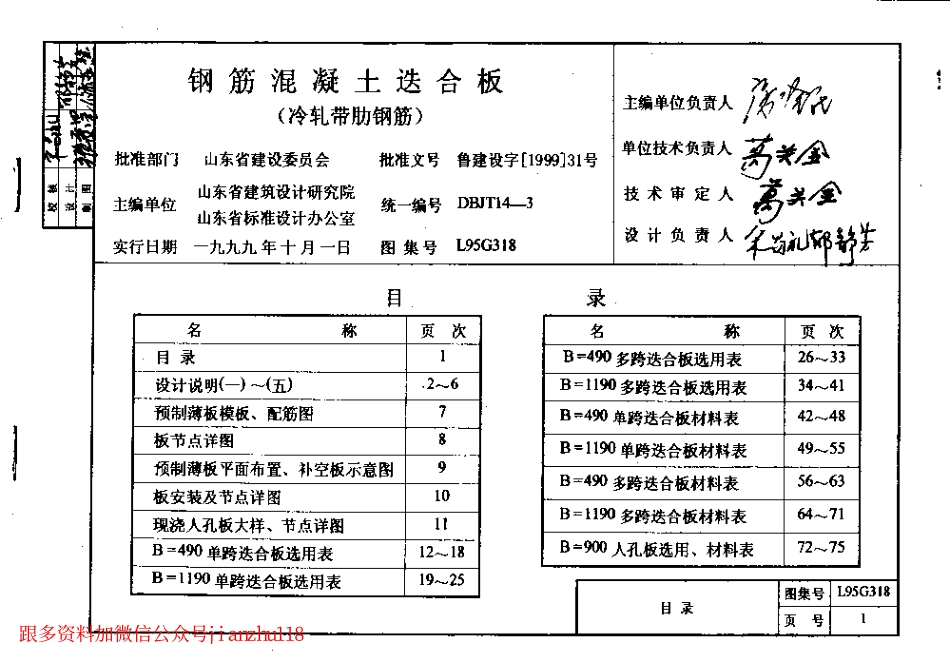 钢筋混凝土迭合板
（冷轧带肋钢筋）
批准部门 山东省建设委员会 批准文号 鲁建设字[1999]31号
主编单位 山东省建筑设计研究院 山东省标准设计办公室 统一编号 DBJT14—3
实行日期 一九九九年十月一日 图集号 L95G318
主编单位负责人
单位技术负责人
技术审定人
设计负责人
校核
设计
制图
目录
名称 页次
目录 1
设计说明(一)～(五) 2～6
预制薄板模板、配筋图 7
板节点详图 8
预制薄板平面布置、补空板示意图 9
板安装及节点详图 10
现浇人孔板大样、节点详图 11
B=490单跨迭合板选用表 12～18
B=1190单跨迭合板选用表 19～25
名称 页次
B=490多跨迭合板选用表 26～33
B=1190多跨迭合板选用表 34～41
B=490单跨迭合板材料表 42～48
B=1190单跨迭合板材料表 49～55
B=490多跨迭合板材料表 56～63
B=1190多跨迭合板材料表 64～71
B=900人孔板选用、材料表 72～75
目录 图集号 L95G318
页号 1
跟多资料加微信公众号jianzhu118